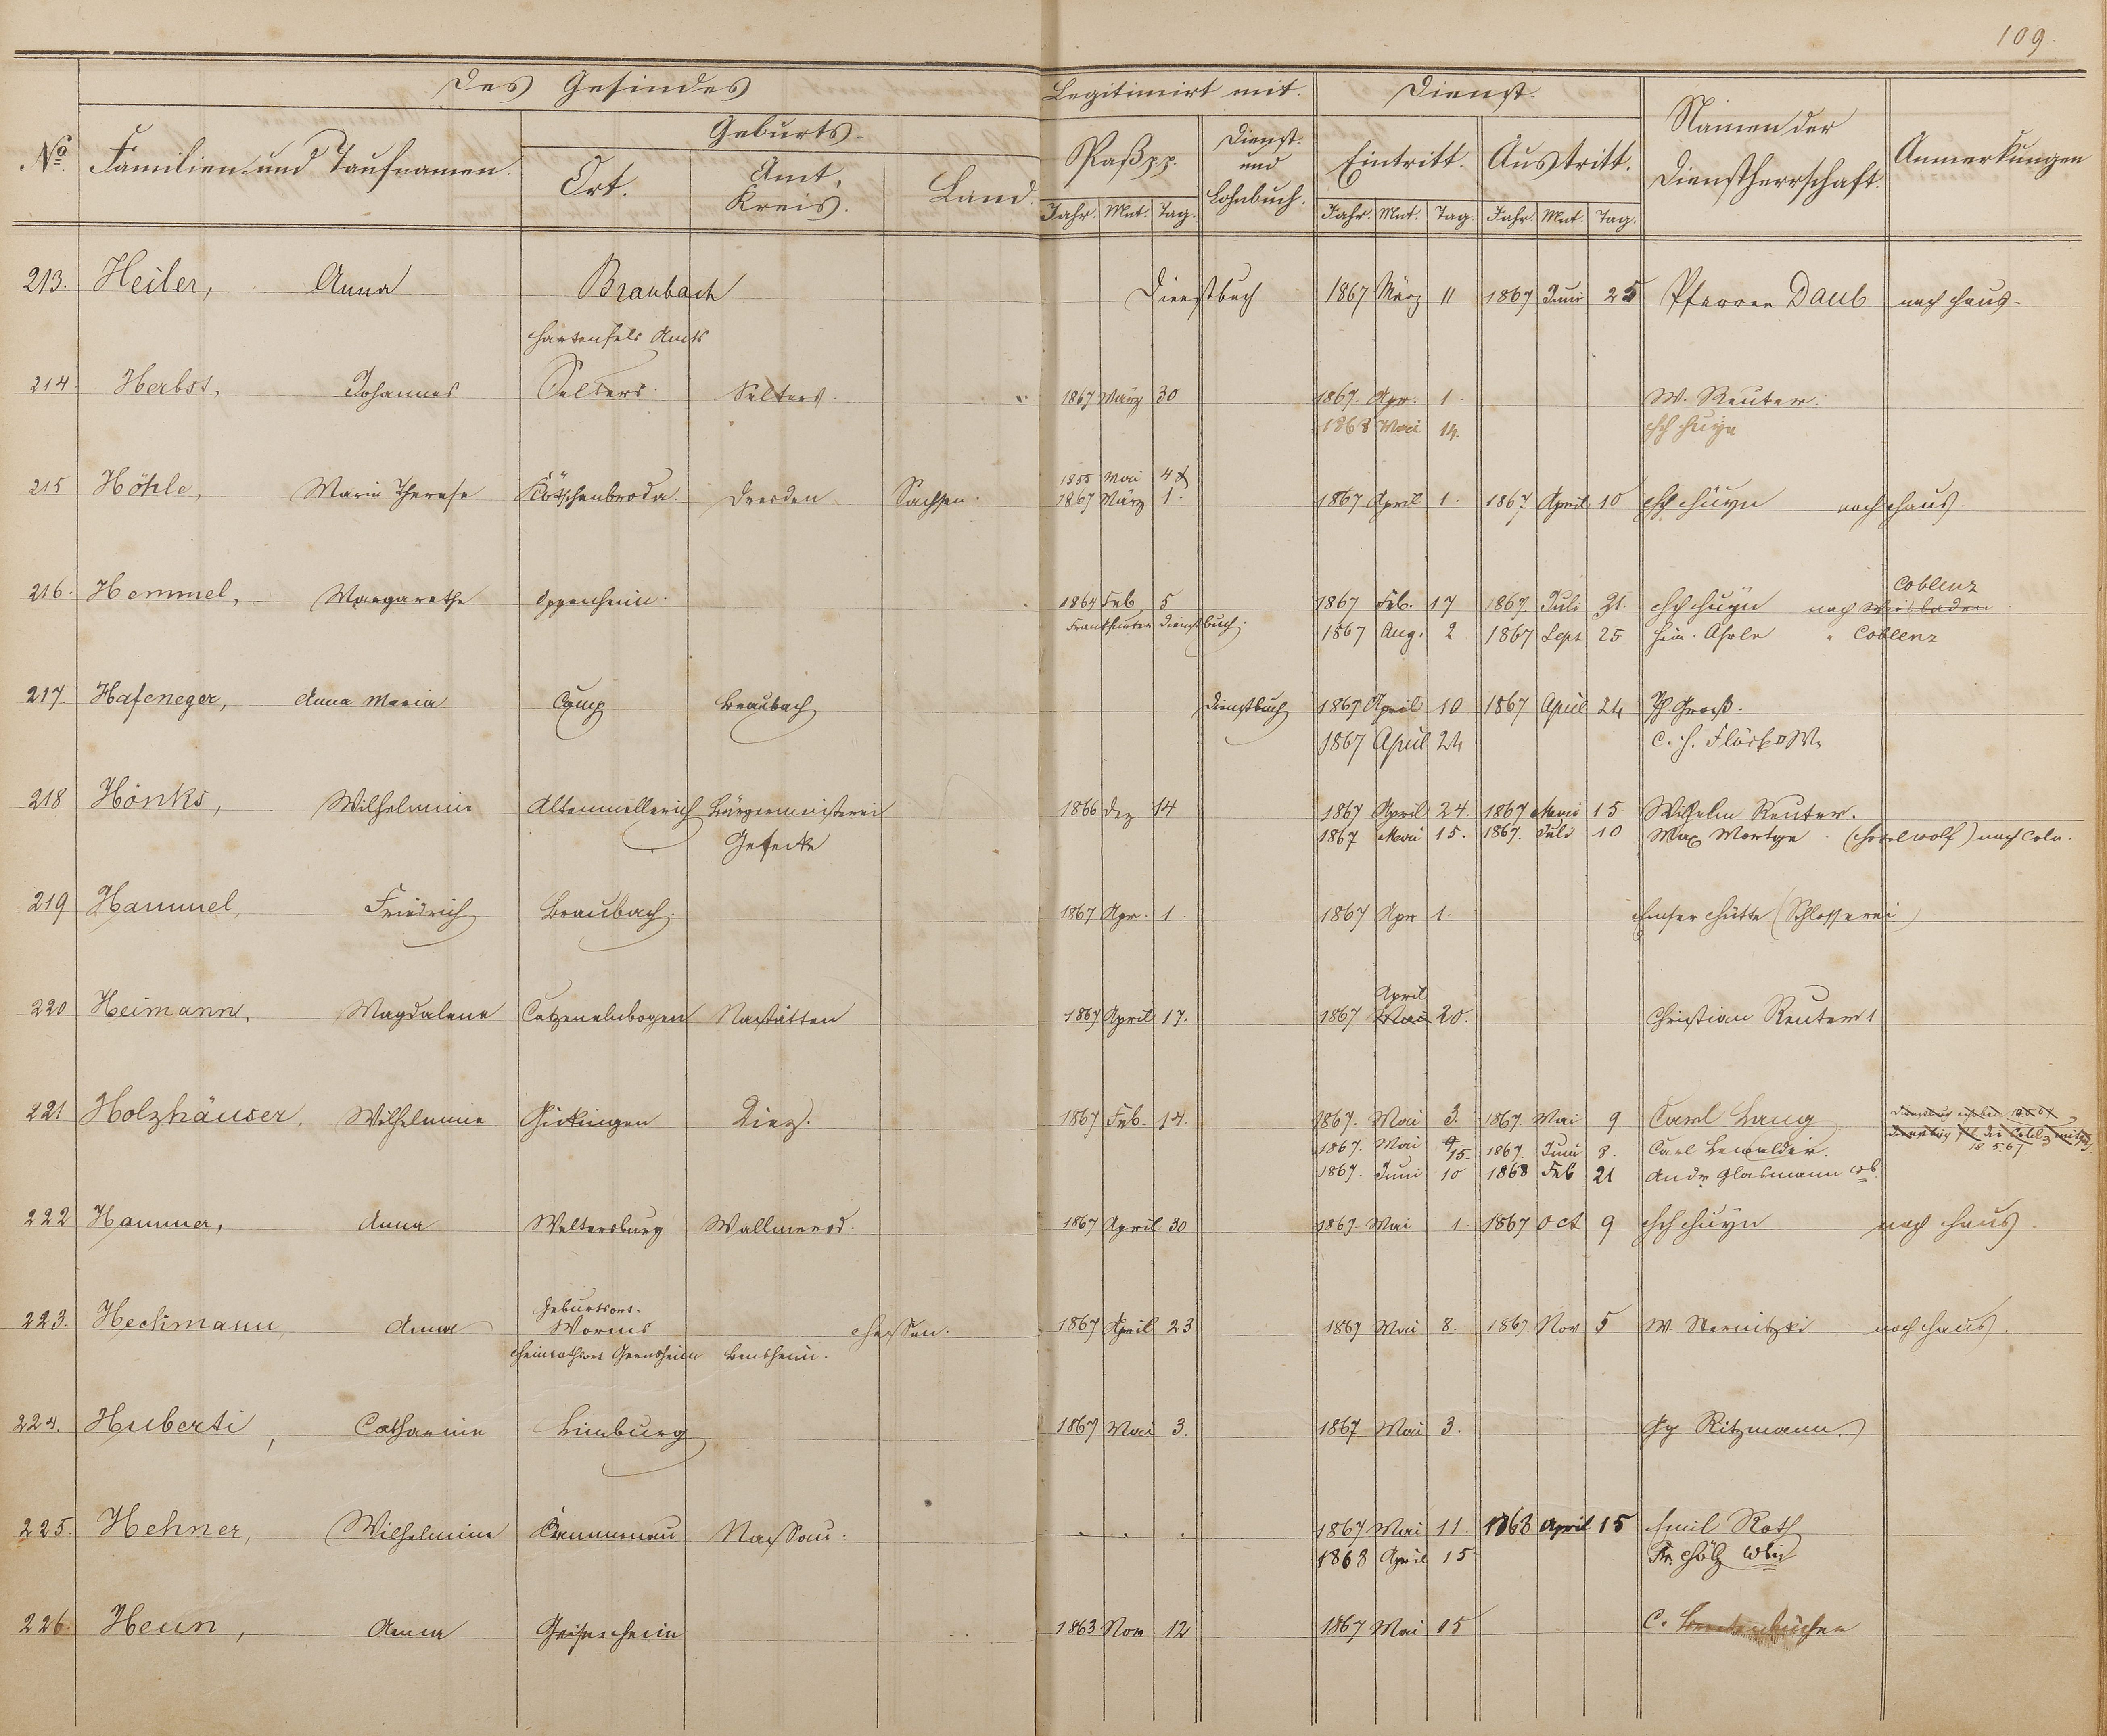 109.
Des Gesindes
Legitimirt mit.
Dienst.
Geburts-
No. Familien- und Taufnamen.
Ort.
Amt, Kreis.
Land.
Paß pp.
Dienst- und Lohnbuch.
Eintritt. Austritt.
Namen der Dienstherrschaft.
Anmerkungen
Jahr. Mnt. Tag.
Jahr. Mnt. Tag. Jahr. Mnt. Tag.
213. Heiler, Anna Braubach Dienstbuch 1867 März 11 1867 Juni 25 Pfarrer Daub nach Haus.
Hartenfels Amts
214. Herbst, Johannes Selters Selters. " 1867 März 30 1867. Apr. 1. W. Reuter.
1868 Mai 14.
215 Höhle, Marie Therese Kötschenbroda. Dresden Sachsen. 1855 Mai 4
1867 März 1. 1867 April 1. 1867 April 10 nach Haus.
Coblenz
216. Hemmel, Margarethe Oppenheim. 1864 Feb. 5 1867 Feb. 17 1867 Juli 31. nach Wiesbaden
Frankfurter Dienstbuch. 1867 Aug. 2 1867 Sept 25 " Coblenz
217. Hafeneger, Anna Maria Camp Braubach Dienstbuch 1867 April 10 1867 April 24
1867 April 24 C. H. Flöck W.
218 Hönks, Wilhelmine Altenmellerich Bürgermeisterei 1866 Dez 14 1867 April 24. 1867 Mai 15 Wilhelm Reuter.
Gesecke 1867 Mai 15. 1867. Juli 10 nach Coln.
219 Hammel, Friedrich Braubach. 1867 Apr. 1. 1867 Apr 1. Emser Hütte (Schlosserei)
April
220 Heimann, Magdalene Catzenelnbogen Nastätten 1867 April 17. 1867 Mai 20. Christian Reuter 1
221 Holzhäuser, Wilhelmine Diez. 1867 Feb. 14. 1867. Mai 3. 1867. Mai 9 Carl Lang
1867. Mai 15. 1867. Juni 8. Carl
18. 5. 67.
1867. Juni 10 1868 Feb 21 Andr. Glasmann
222 Hammer, Anna Weltersburg Wallmerod. 1867 April 30 1867. Mai 1. 1867 Oct 9 nach Haus.
Geburtsort.
223. Heckmann, Anna Worms Hessen. 1867 April 23 1867 Mai 8. 1867 Nov 5 nach Haus.
Heimathsort Gernsheim Bensheim.
224. Huberti, Catharine Limburg 1867 Mai 3. 1867 Mai 3. Gg Ritzmann.
225. Hehner, Wilhelmine Nassau. . . . 1867 Mai 11. 1868 April 15 Emil Roth
1868 April 15 Fr.
226. Heun, Anna Geisenheim 1863 Nov 12 1867 Mai 15 C.